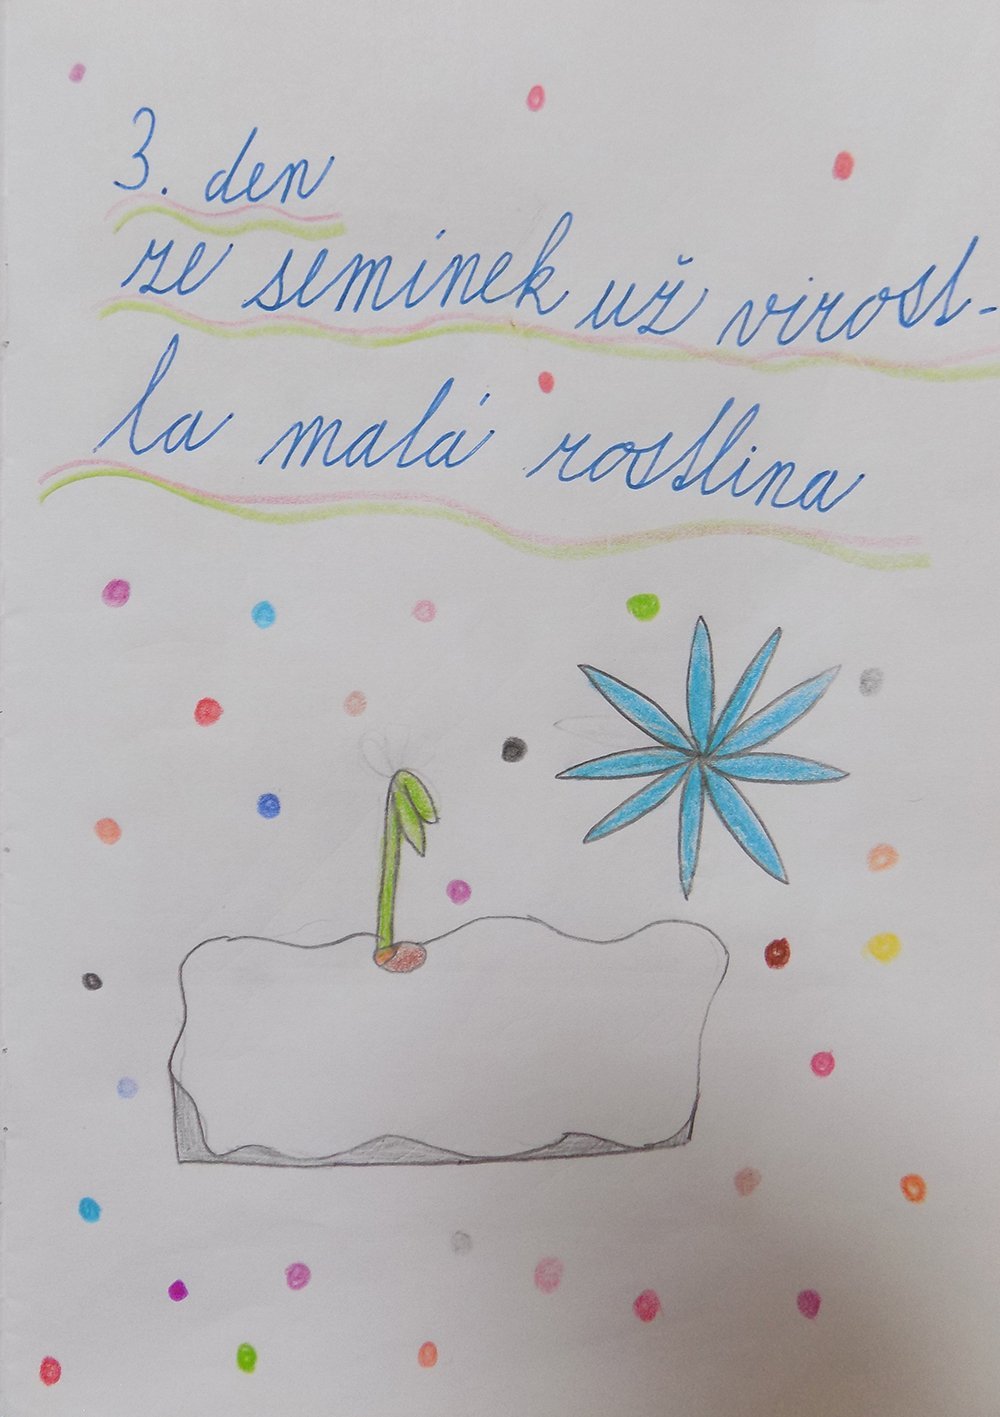 3. den
ze seminek už virost-
la malá rostlina